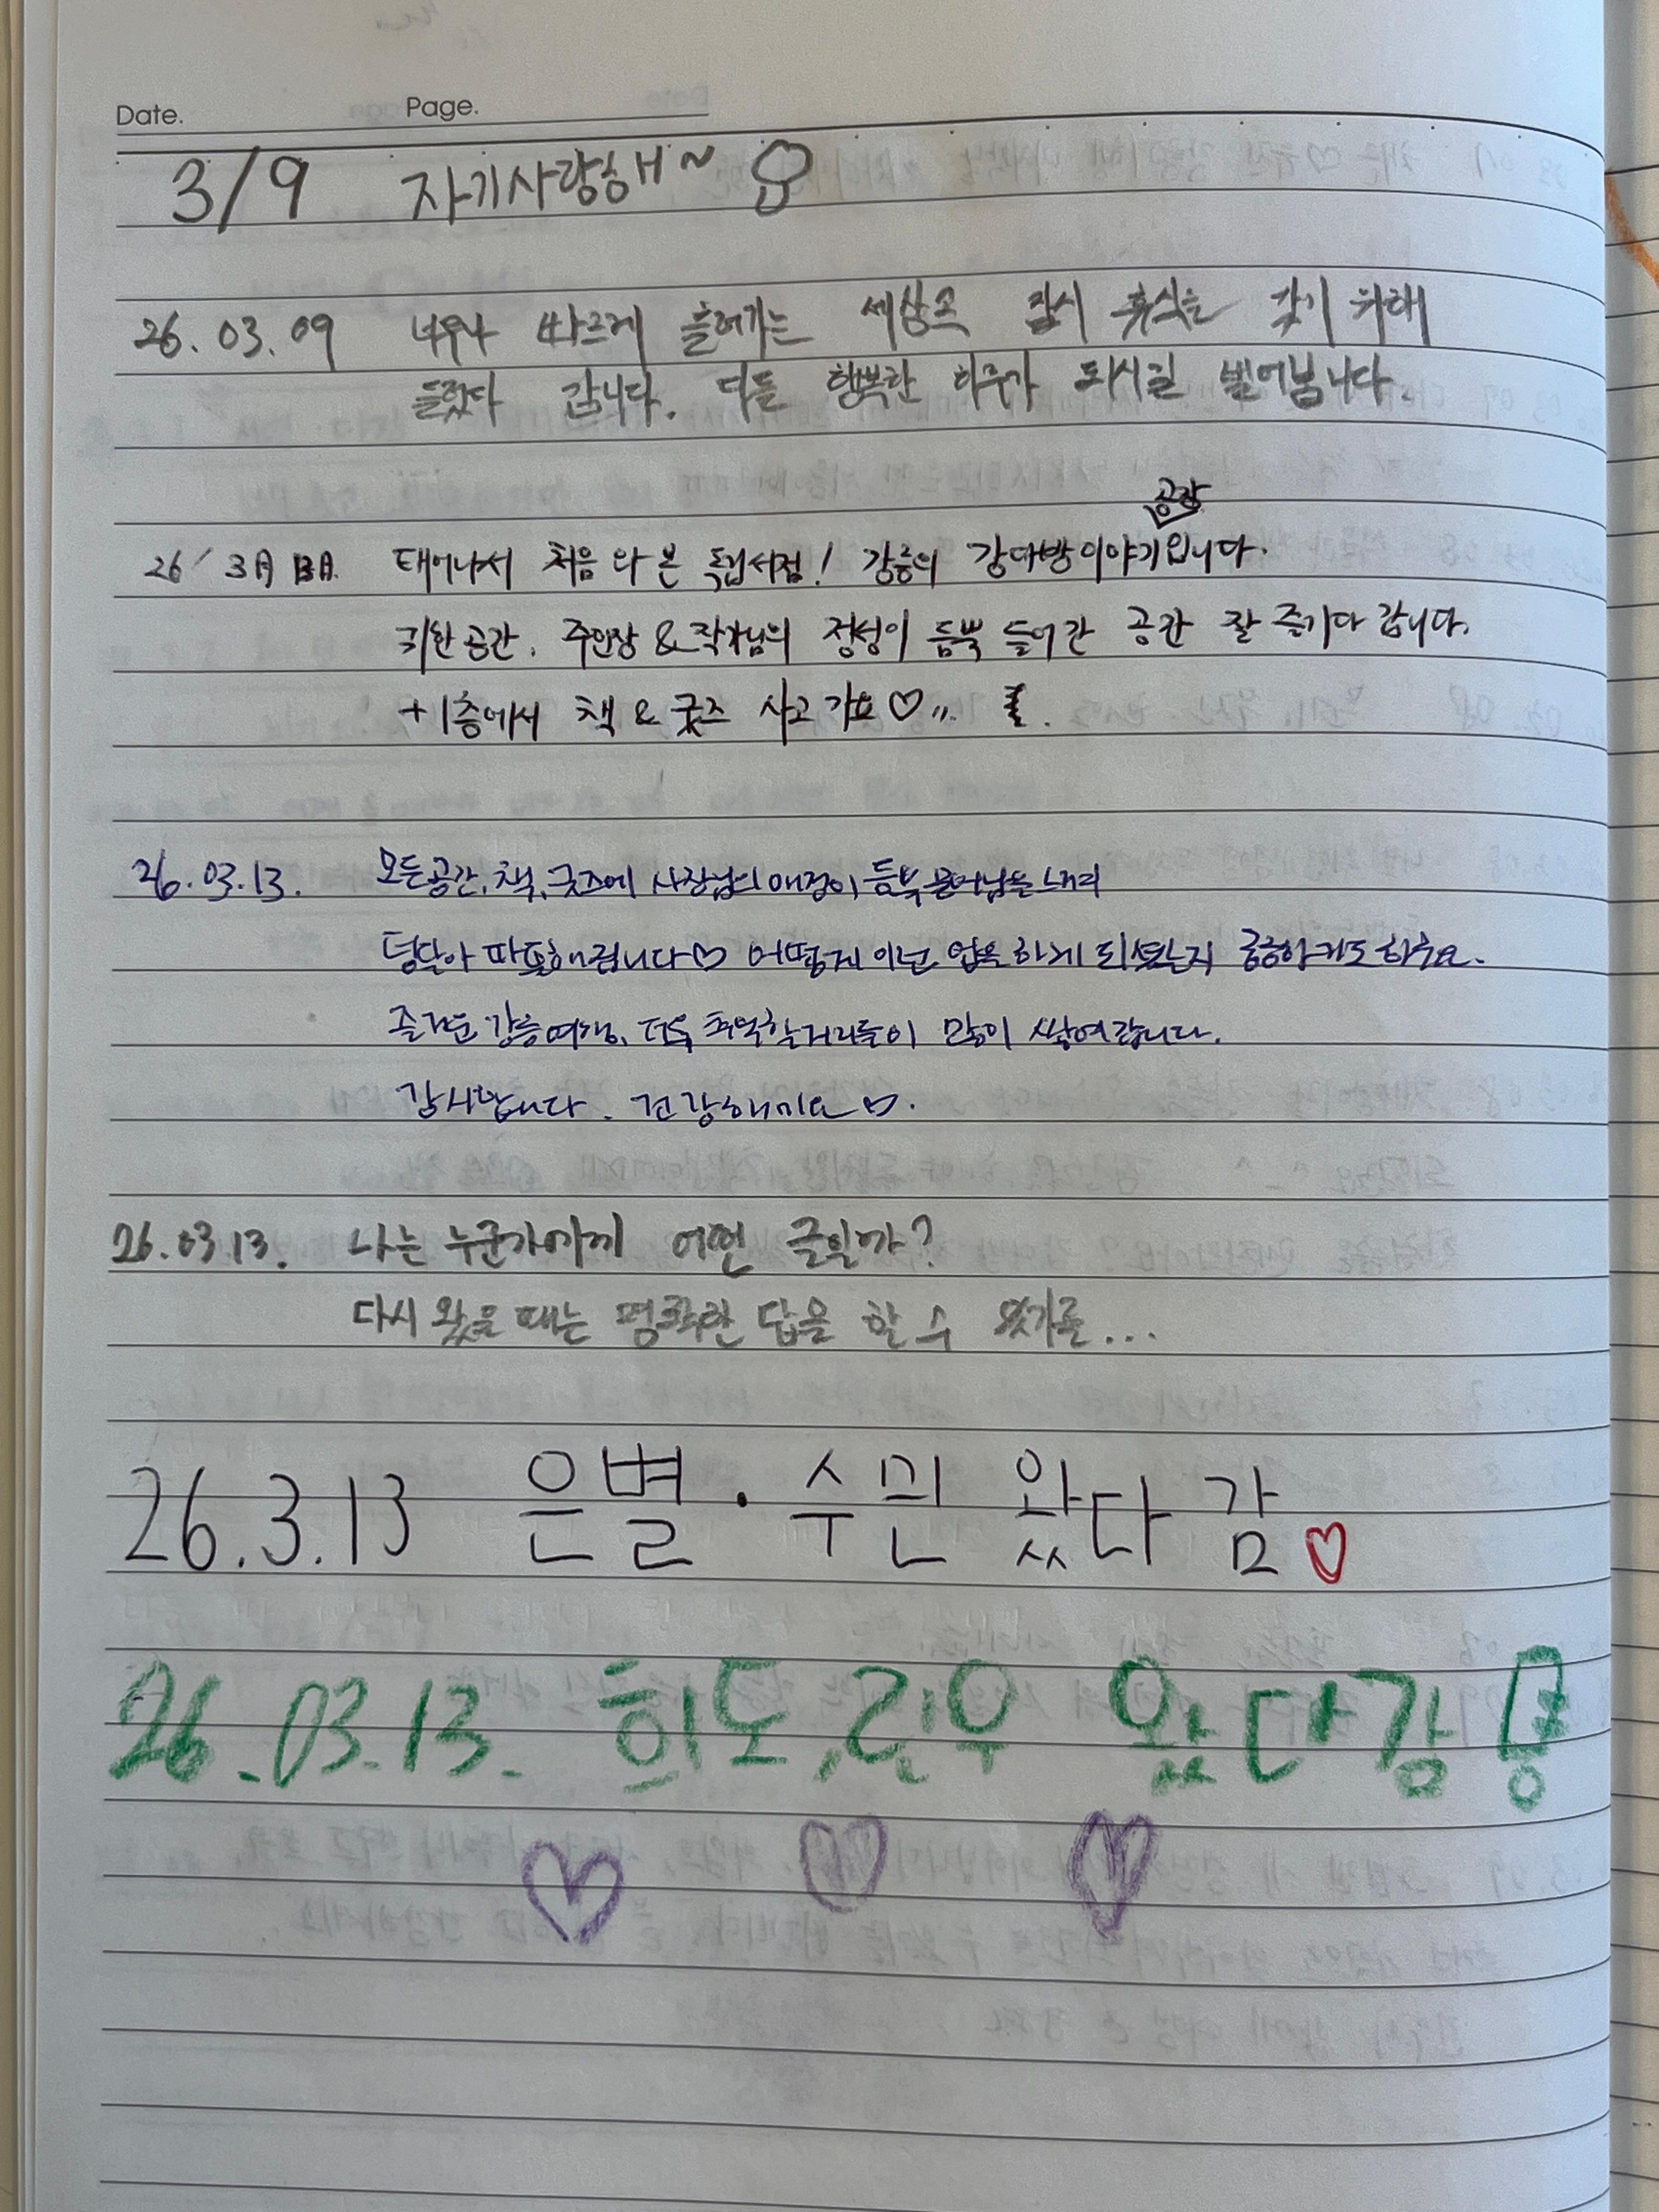 Date. Page.
3/9 자기사랑해~
26. 03. 09 너무나 빠르게 흘러가는 세상속 잠시 휴식을 갖기 위해
들렸다 갑니다. 다들 행복한 하루가 되시길 빌어봅니다.
공장
26' 3月 13日. 태어나서 처음 와 본 독립서점! 강릉의 강다방이야기입니다.
귀한 공간. 주인장 & 작가님의 정성이 듬뿍 들어간 공간 잘 즐기다 갑니다.
+ 1층에서 책 & 굿즈 사고 가요♡
26. 03. 13. 모든공간, 책, 굿즈에 사장님의 애정이 듬뿍 묻어남을 느끼며
덩달아 따뜻해집니다♡ 어떻게 이런 업을 하게 되셨는지 궁금하기도 하구요.
즐거운 강릉여행, 더욱 추억할거리들이 많이 쌓여갑니다.
감사합니다. 건강하세요♡.
26. 03 13. 나는 누군가에게 어떤 글일까?
다시 왔을 때는 명확한 답을 할 수 있기를...
26.3.13 은별·수민 왔다 감♡
26.03.13. 희도, 리우 왔다감!